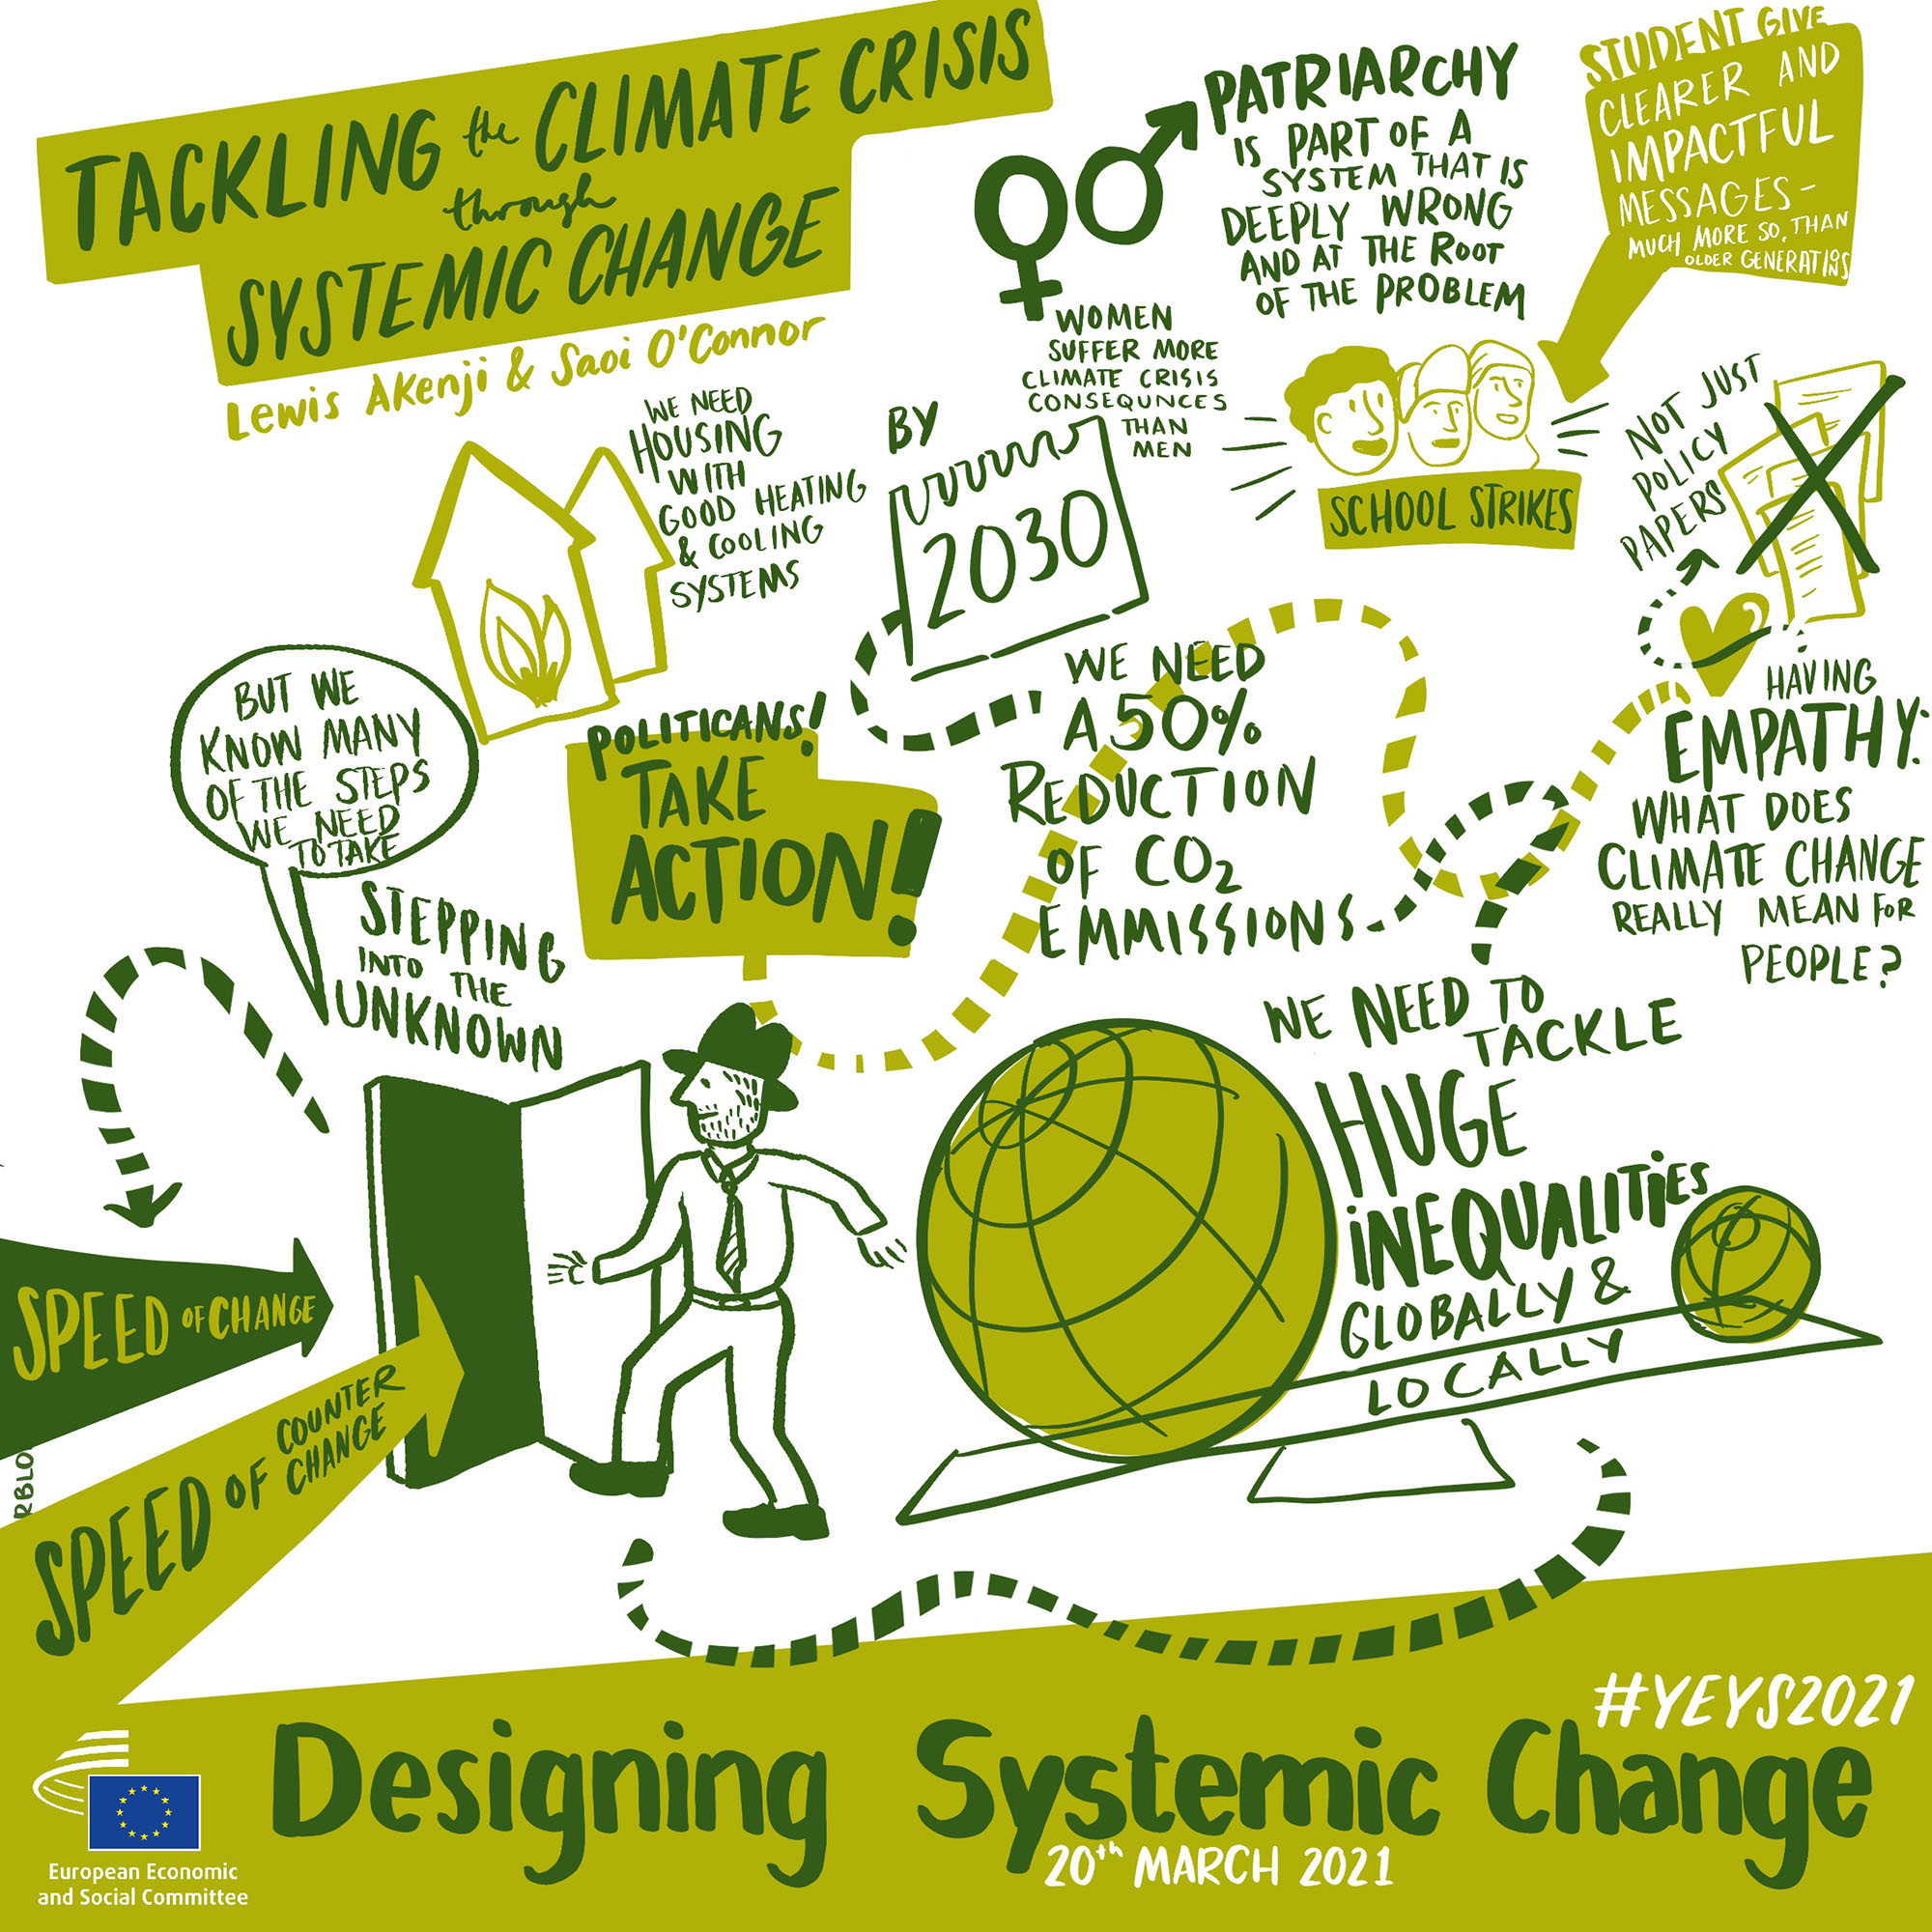 TACKLING the CLIMATE CRISIS
through
SYSTEMIC CHANGE
Lewis Akenji & Saoi O'Connor
PATRIARCHY
IS PART OF A
SYSTEM THAT IS
DEEPLY WRONG
AND AT THE ROOT
OF THE PROBLEM
STUDENT GIVE
CLEARER AND
IMPACTFUL
MESSAGES-
MUCH MORE SO, THAN
OLDER GENERATIONS
WOMEN
SUFFER MORE
CLIMATE CRISIS
CONSEQUNCES
THAN
MEN
SCHOOL STRIKES
NOT JUST
POLICY
PAPERS
WE NEED
HOUSING
WITH
GOOD HEATING
& COOLING
SYSTEMS
BY
2030
WE NEED
A 50%
REDUCTION
OF CO2
EMMISSIONS
HAVING
EMPATHY:
WHAT DOES
CLIMATE CHANGE
REALLY MEAN FOR
PEOPLE?
BUT WE
KNOW MANY
OF THE STEPS
WE NEED
TO TAKE
POLITICANS!
TAKE
ACTION!
STEPPING
INTO THE
UNKNOWN
WE NEED TO
TACKLE
HUGE
INEQUALITIES
GLOBALLY &
LOCALLY
SPEED OF CHANGE
SPEED OF COUNTER
CHANGE
RBLO
#YEYS2021
Designing Systemic Change
20th MARCH 2021
European Economic
and Social Committee